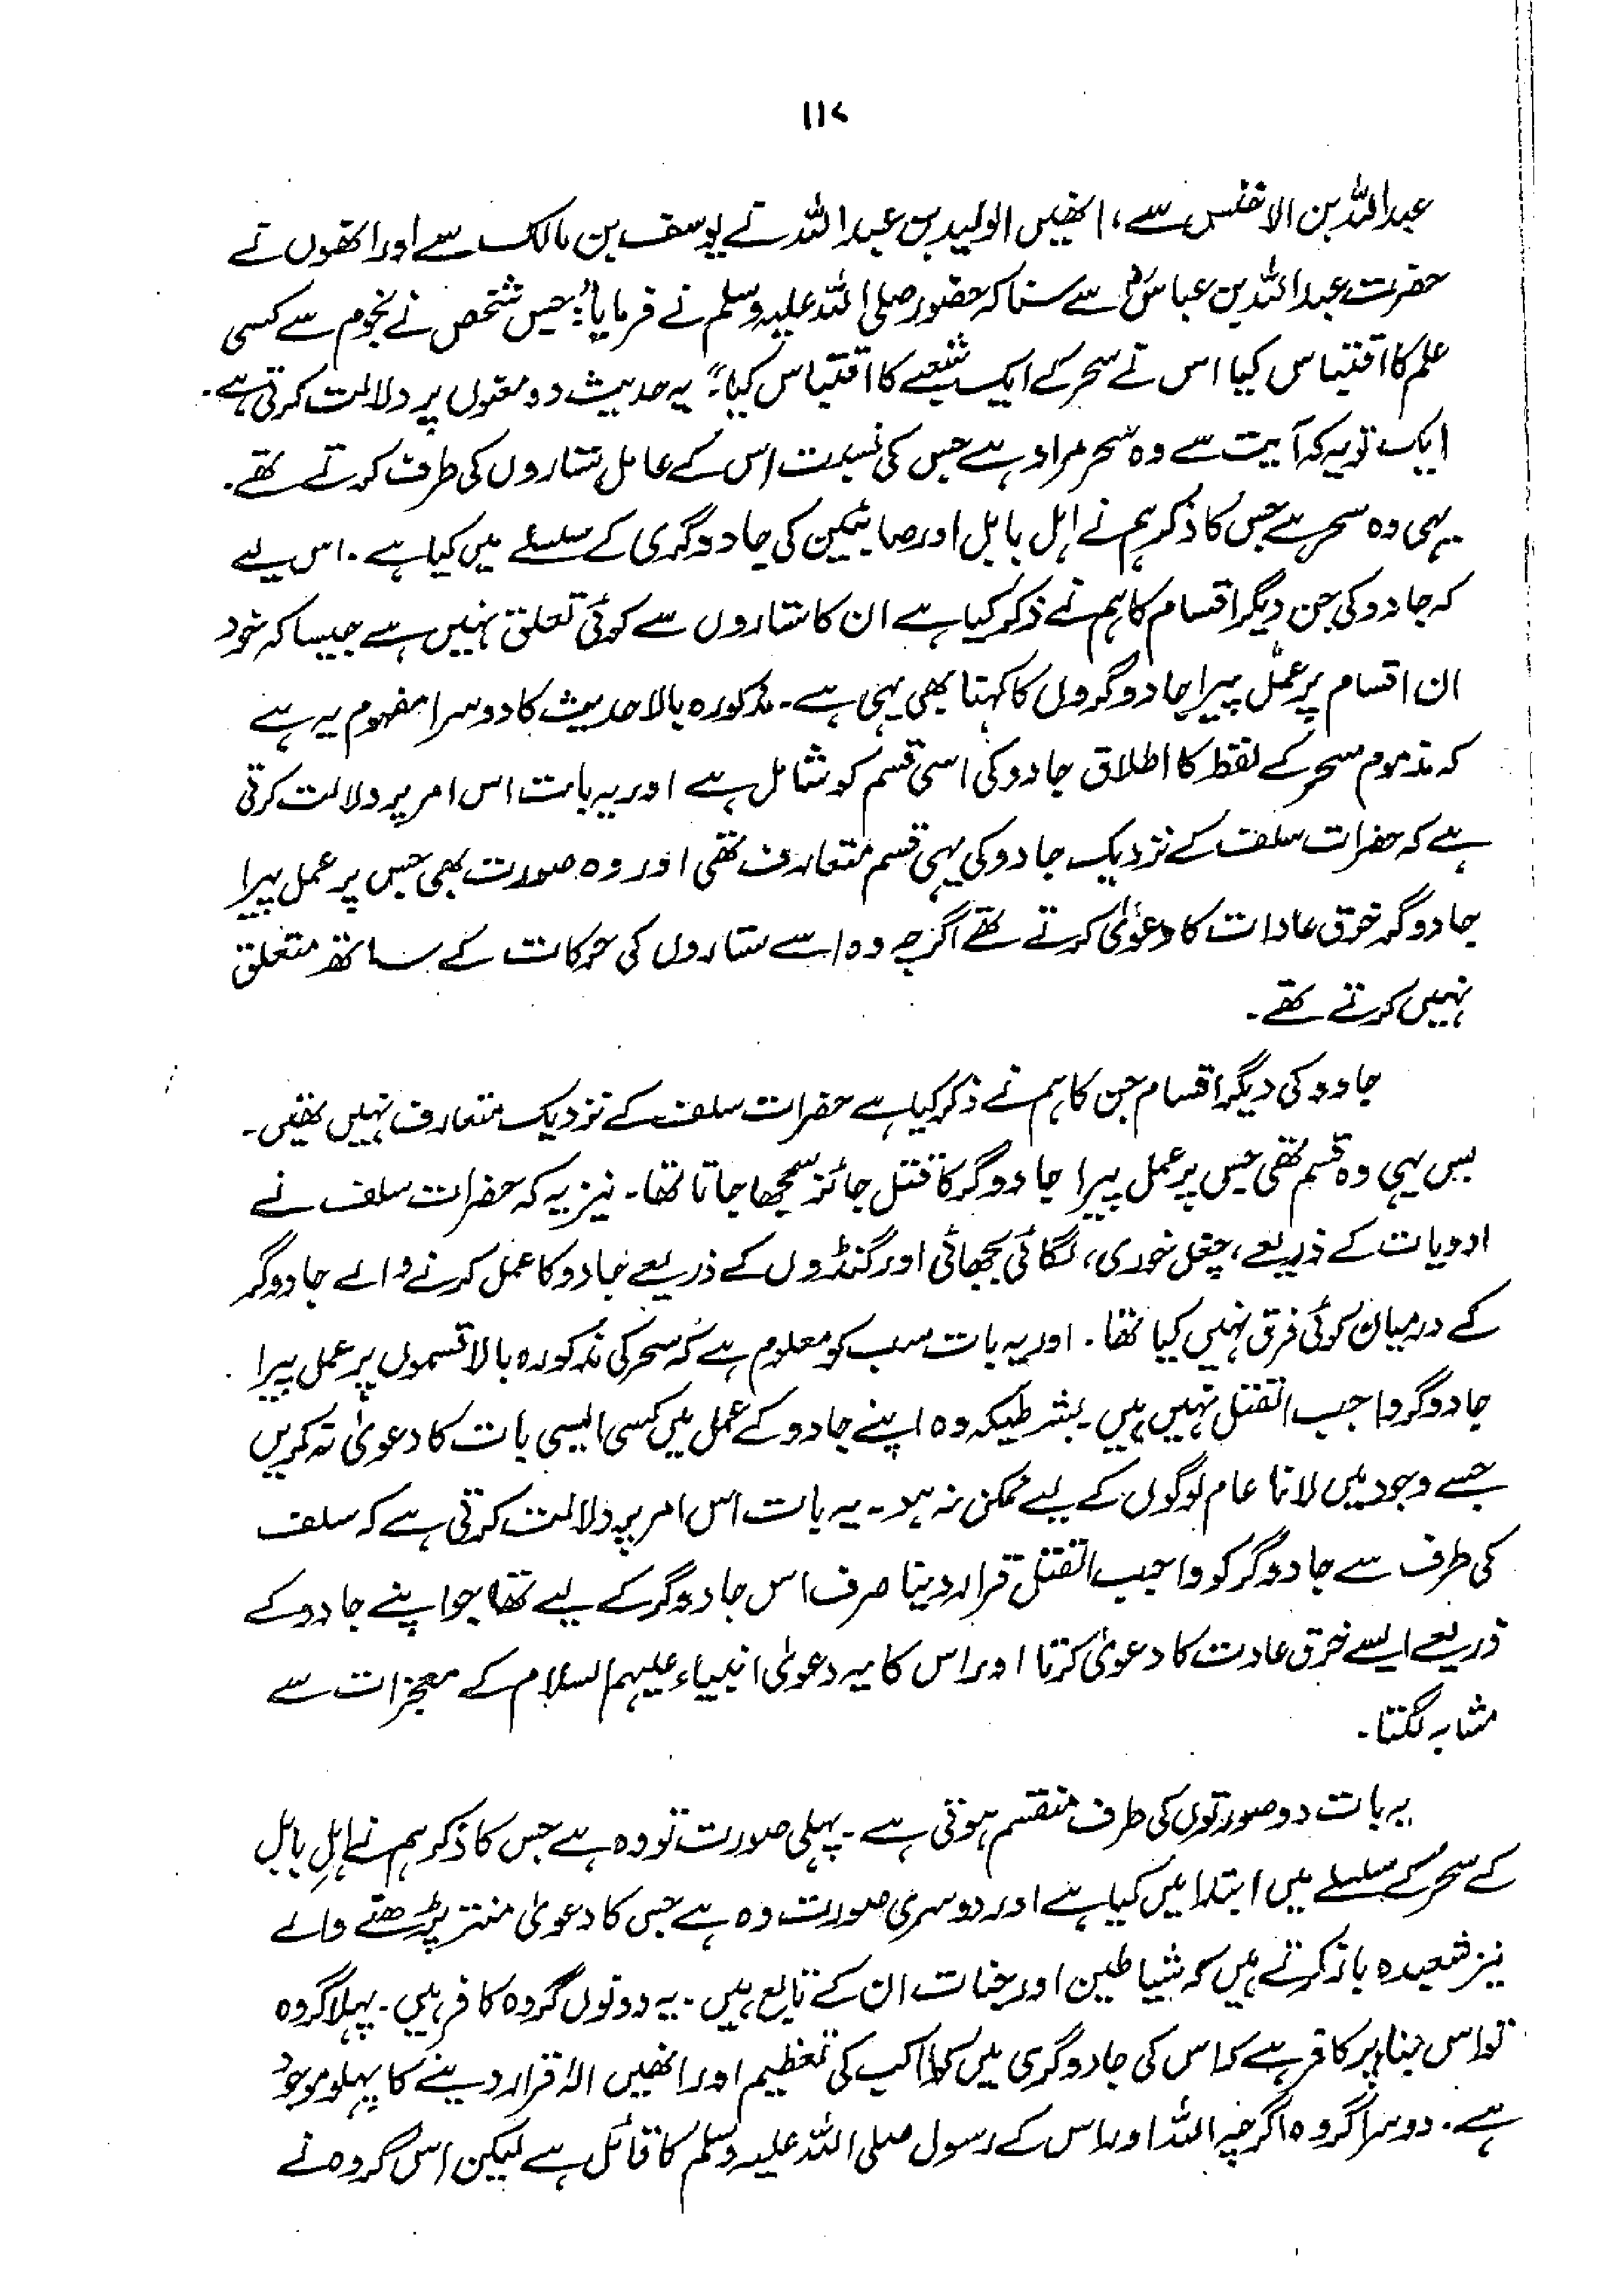 ۱۱۷
عبداللہ بن الاخنس سے، انھیں الولید بن عبداللہ نے یوسف بن مالک سے اور انھوں نے
حضرت عبداللہ بن عباسؓ سے سنا کہ حضور صلی اللہ علیہ وسلم نے فرمایا: "جس شخص نے نجوم سے کسی
علم کا اقتباس کیا اس نے سحر کے ایک شعبے کا اقتباس کیا"۔ یہ حدیث دو معنوں پر دلالت کرتی ہے۔
ایک تو یہ کہ آیت سے وہ سحر مراد ہے جس کی نسبت اس کے عامل ستاروں کی طرف کرتے تھے۔
یہی وہ سحر ہے جس کا ذکر ہم نے اہل بابل اور صابئین کی جادوگری کے سلسلے میں کیا ہے۔ اس لیے
کہ جادو کی جن دیگر اقسام کا ہم نے ذکر کیا ہے ان کا ستاروں سے کوئی تعلق نہیں ہے جیسا کہ خود
ان اقسام پر عمل پیرا جادوگروں کا کہنا بھی یہی ہے۔ مذکورہ بالا حدیث کا دوسرا مفہوم یہ ہے
کہ مذموم سحر کے لفظ کا اطلاق جادو کی اسی قسم کو شامل ہے اور یہ بات اس امر پر دلالت کرتی
ہے کہ حضرات سلف کے نزدیک جادو کی یہی قسم متعارف تھی اور وہ صورت بھی جس پر عمل پیرا
جادوگر خرق عادات کا دعویٰ کرتے تھے اگرچہ وہ اسے ستاروں کی حرکات کے ساتھ متعلق
نہیں کرتے تھے۔
جادو کی دیگر اقسام جن کا ہم نے ذکر کیا ہے حضرات سلف کے نزدیک متعارف نہیں تھیں۔
بس یہی وہ قسم تھی جس پر عمل پیرا جادوگر کا قتل جائز سمجھا جاتا تھا۔ نیز یہ کہ حضرات سلف نے
ادویات کے ذریعے، چغل خوری، لگائی بجھائی اور گنڈوں کے ذریعے جادو کا عمل کرنے والے جادوگر
کے درمیان کوئی فرق نہیں کیا تھا۔ اور یہ بات سب کو معلوم ہے کہ سحر کی مذکورہ بالا قسموں پر عمل پیرا
جادوگر واجب القتل نہیں ہیں۔ بشرطیکہ وہ اپنے جادو کے عمل میں کسی ایسی بات کا دعویٰ نہ کریں
جسے وجود میں لانا عام لوگوں کے لیے ممکن نہ ہو۔ یہ بات اس امر پر دلالت کرتی ہے کہ سلف
کی طرف سے جادوگر کو واجب القتل قرار دینا صرف اس جادوگر کے لیے تھا جو اپنے جادو کے
ذریعے ایسے خرق عادت کا دعویٰ کرتا اور اس کا یہ دعویٰ انبیاء علیہم السلام کے معجزات سے
مشابہ لگتا۔
یہ بات دو صورتوں کی طرف منقسم ہوتی ہے۔ پہلی صورت تو وہ ہے جس کا ذکر ہم نے اہلِ بابل
کے سحر کے سلسلے میں ابتدا میں کیا ہے اور دوسری صورت وہ ہے جس کا دعویٰ منتر پڑھنے والے
نیز شعبدہ باز کرتے ہیں کہ شیاطین اور جنات ان کے تابع ہیں۔ یہ دونوں گروہ کافر ہیں۔ پہلا گروہ
تو اس بنا پر کافر ہے کہ اس کی جادوگری میں کواکب کی تعظیم اور انھیں الٰہ قرار دینے کا پہلو موجود
ہے۔ دوسرا گروہ اگرچہ اللہ اور اس کے رسول صلی اللہ علیہ وسلم کا قائل ہے لیکن اس گروہ نے